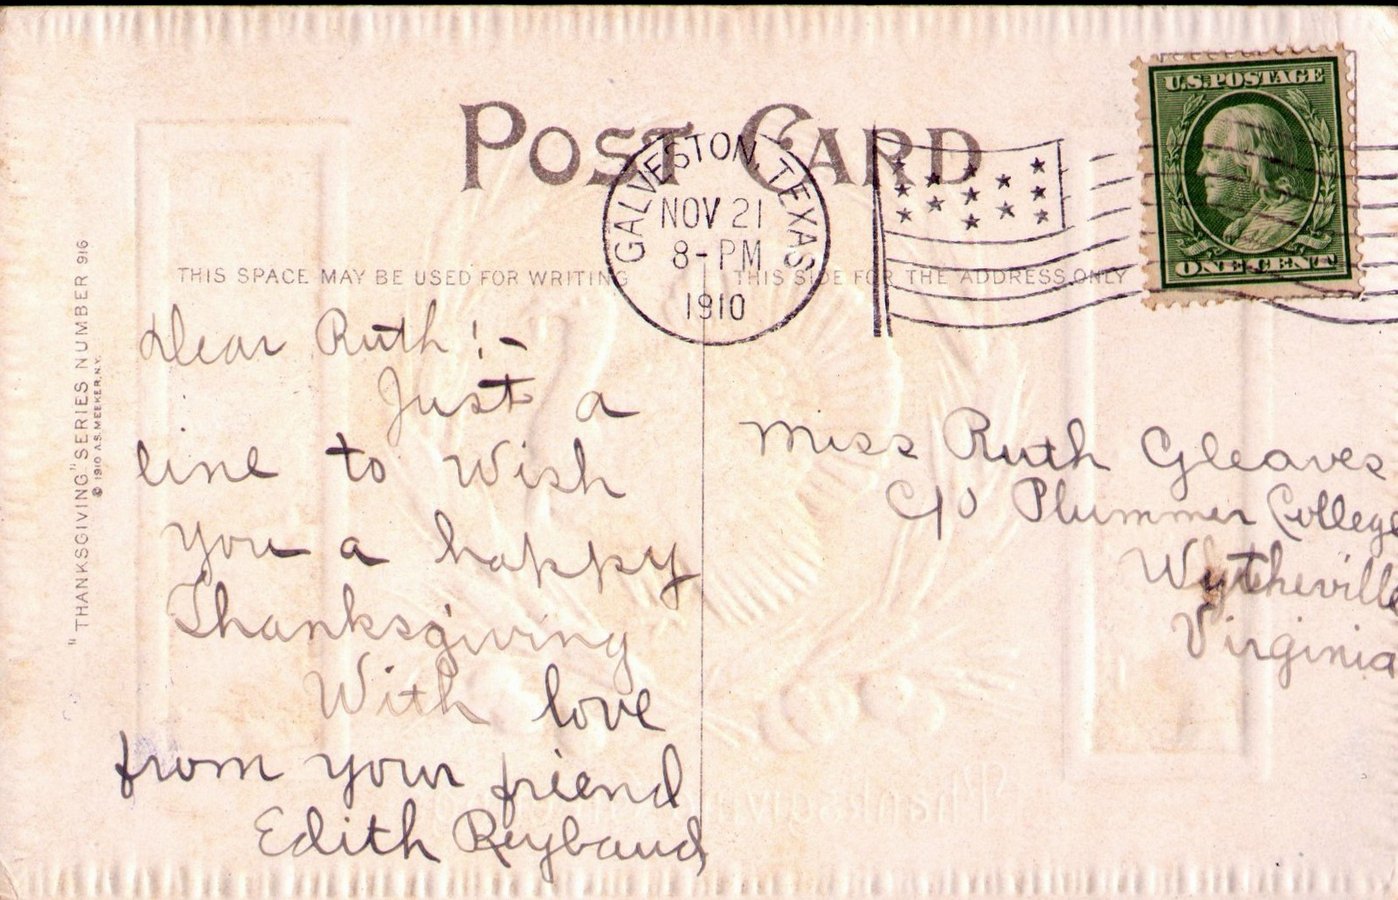 POST CARD
U.S. POSTAGE
ONE CENT
GALVESTON, TEXAS
NOV 21
8-PM
1910
THIS SPACE MAY BE USED FOR WRITING
THIS SIDE FOR THE ADDRESS ONLY
"THANKSGIVING" SERIES NUMBER 916
© 1910 A.S. MEEKER, N.Y.
Dear Ruth :-
Just a
line to Wish
you a happy
Thanksgiving
With love
from your friend
Edith Reybaud
Miss Ruth Gleaves
C/O Plummer College
Wytheville
Virginia